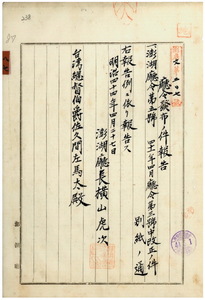 廳令發布ノ件報告
一澎湖廳令第五號 四十一年四月廳令第三號中改正ノ件
別紙ノ通
右報告例ニ依リ報告ス
明治四十四年四月二十七日
澎湖廳長横山虎次
台灣總督伯爵佐久間左馬太殿